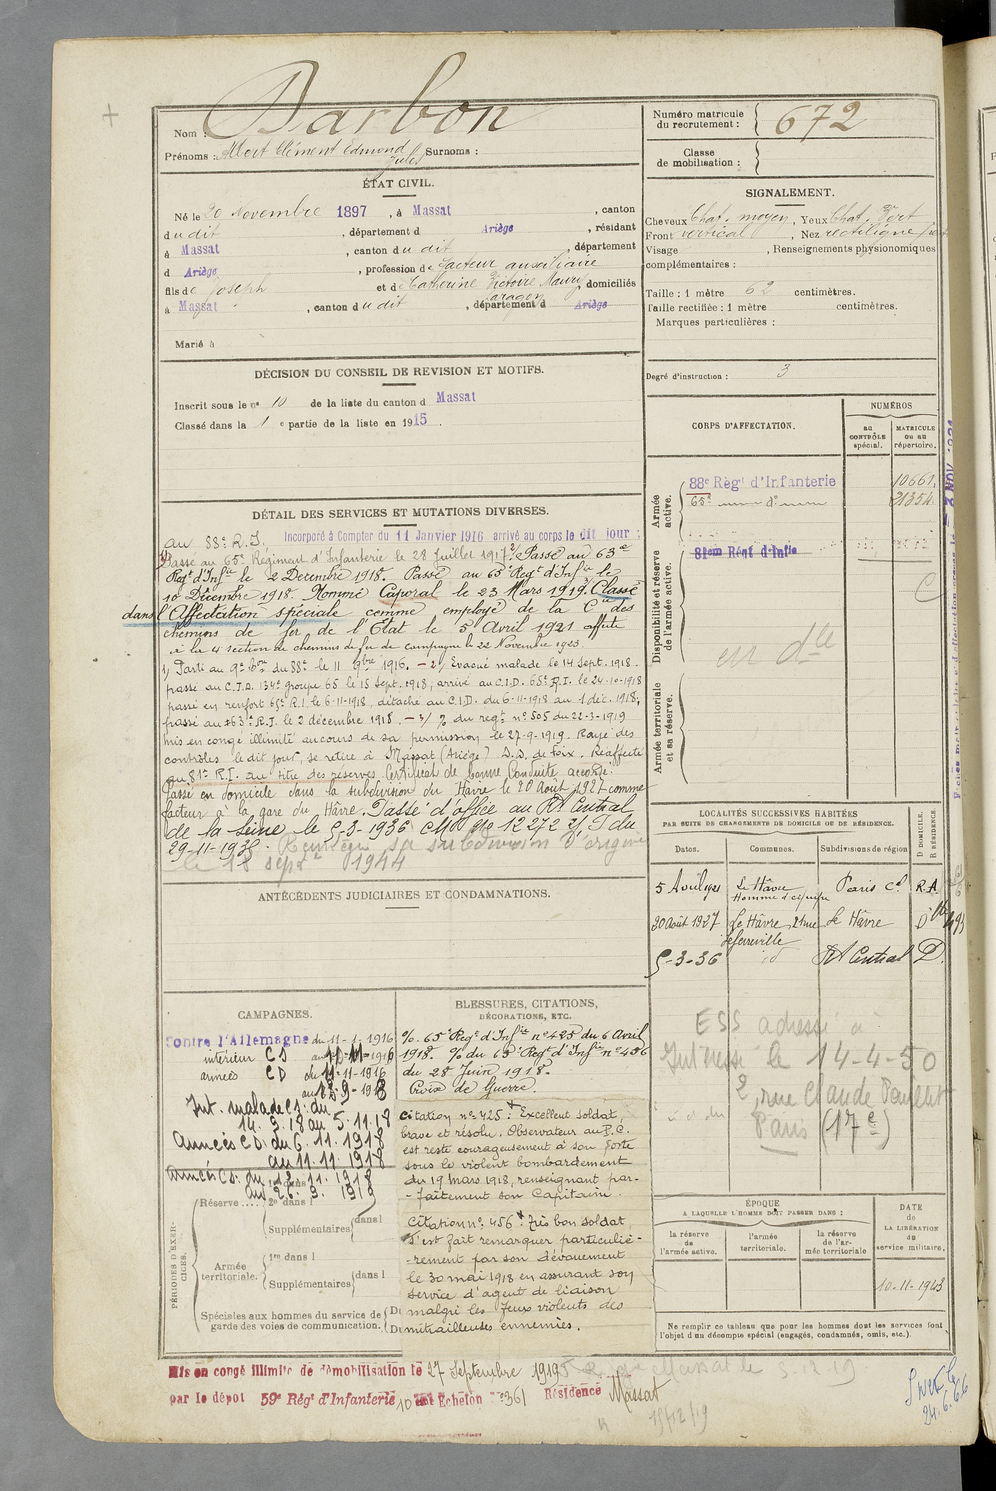 Nom : Barbon
Prénoms : Albert Clément Edmond Jules Surnoms :
Numéro matricule du recrutement : 672
Classe de mobilisation :
ÉTAT CIVIL.
Né le 20 Novembre 1897, à Massat, canton
du dit, département d Ariège, résidant
à Massat, canton du dit, département
d Ariège, profession de facteur auxiliaire
fils de Joseph et de Catherine Victoire Maury, domiciliés
à Massat, canton du dit, département d Ariège
Marié à
SIGNALEMENT.
Cheveux Chat. moyen, Yeux Chat.
Front vertical, Nez rectiligne
Visage , Renseignements physionomiques
complémentaires :
Taille : 1 mètre 62 centimètres.
Taille rectifiée : 1 mètre centimètres.
Marques particulières :
Degré d'instruction : 3
DÉCISION DU CONSEIL DE REVISION ET MOTIFS.
Inscrit sous le nº 10 de la liste du canton d Massat
Classé dans la 1 e partie de la liste en 1915.
CORPS D'AFFECTATION.
NUMÉROS
au CONTRÔLE spécial.
MATRICULE ou au répertoire.
Armée active.
88e Régt d'Infanterie 10661
65e d° 21354
Disponibilité et réserve de l'armée active.
81em Régt d'Infie
en dlle
Armée territoriale et sa réserve.
DÉTAIL DES SERVICES ET MUTATIONS DIVERSES.
au 88e R.I. Incorporé à Compter du 11 Janvier 1916 arrivé au corps le dit jour :
Passé au 65e Régiment d'Infanterie le 28 Juillet 1917. Passé au 63e
Regt d'Infie le 2 Décembre 1918. Passé au 65e Regt d'Infie le
10 Décembre 1918. Nommé Caporal le 23 Mars 1919. Classé
dans l'Affectation spéciale comme employé de la Cie des
chemins de fer de l'État le 5 Avril 1921 affecté
à la 4 section de chemins de fer de campagne le 22 Novembre 1923.
1/ Parti au 9e Bon du 88e le 11 9bre 1916. — 2/ Evacué malade le 14 Sept. 1918.
passé au C.I.D. 134e groupe 65 le 15 Sept. 1918, arrivé au C.I.D. 65e R.I. le 24-10-1918
passé en renfort 65e R.I. le 6-11-1918, détaché au C.I.D. du 6-11-1918 au 1 déc. 1918,
passé au 63e R.I. le 2 décembre 1918. — 3/ % du regt nº 505 du 22-3-1919
mis en congé illimité au cours de sa permission le 27-9-1919. Rayé des
contrôles le dit jour, se retire à Massat (Ariège) D.D. de Foix. Réaffecté
au 81e R.I. au titre des réserves. Certificat de bonne conduite accordé.
Passé en domicile dans la subdivision du Havre le 20 Août 1927 comme
facteur à la gare du Hâvre. Passé d'office au Rt Central
de la Seine le 5-3-1936
29-11-1935. Réintégré sa subdivision d'origine
le 18 sept 1944
ANTÉCÉDENTS JUDICIAIRES ET CONDAMNATIONS.
LOCALITÉS SUCCESSIVES HABITÉES
PAR SUITE DE CHANGEMENTS DE DOMICILE OU DE RÉSIDENCE.
Dates. Communes. Subdivisions de région D DOMICILE. R RÉSIDENCE
5 Avril 1921 Le Hâvre Homme d'équipe Paris Cl R.A
20 Août 1927 Le Hâvre, 21 rue Lefèvreville Le Hâvre D
5-3-36 id Rt Central D.
ESS adressé à
l'intéressé le 14-4-50
2, rue Claude Pouillet
Paris (17e)
CAMPAGNES.
Contre l'Allemagne du 11-1-1916
intérieur CS au 10-11-1916
armées CD du 11-11-1916
au 13-9-1918
Int. malade CS: du
14.9.18 au 5.11.18
Armées CD: du 6.11.1918
au 11.11.1918
Armée CS: du 12.11.1918
au 26.9.1919
BLESSURES, CITATIONS,
DÉCORATIONS, ETC.
% 65e Regt d'Infie nº 425 du 6 Avril
1918. % du 65e Regt d'Infie nº 456
du 28 Juin 1918.
Croix de Guerre.
Citation nº 425. Excellent soldat,
brave et résolu. Observateur au P.C.
est resté courageusement à son poste
sous le violent bombardement
du 19 Mars 1918, renseignant par-
-faitement son Capitaine.
Citation nº 456. Très bon soldat,
s'est fait remarquer particuliè-
-rement par son dévouement
le 30 mai 1918 en assurant son
service d'agent de liaison
malgré les feux violents des
mitrailleuses ennemies.
PÉRIODES D'EXERCICES.
Réserve.... 1re dans l
2e dans l
Supplémentaires dans l
Armée territoriale. 1re dans l
Supplémentaires dans l
Spéciales aux hommes du service de
garde des voies de communication.
ÉPOQUE
A LAQUELLE L'HOMME DOIT PASSER DANS :
la réserve de l'armée active. l'armée territoriale. la réserve de l'armée territoriale
DATE de LA LIBÉRATION du service militaire.
10-11-1943
Ne remplir ce tableau que pour les hommes dont les services font
l'objet d'un décompte spécial (engagés, condamnés, omis, etc.).
Mis en congé illimité de démobilisation le 27 Septembre 1919
par le dépôt 59e Régt d'Infanterie 10 Echelon nº 361 Résidence Massat
15/12/19
24.6.66